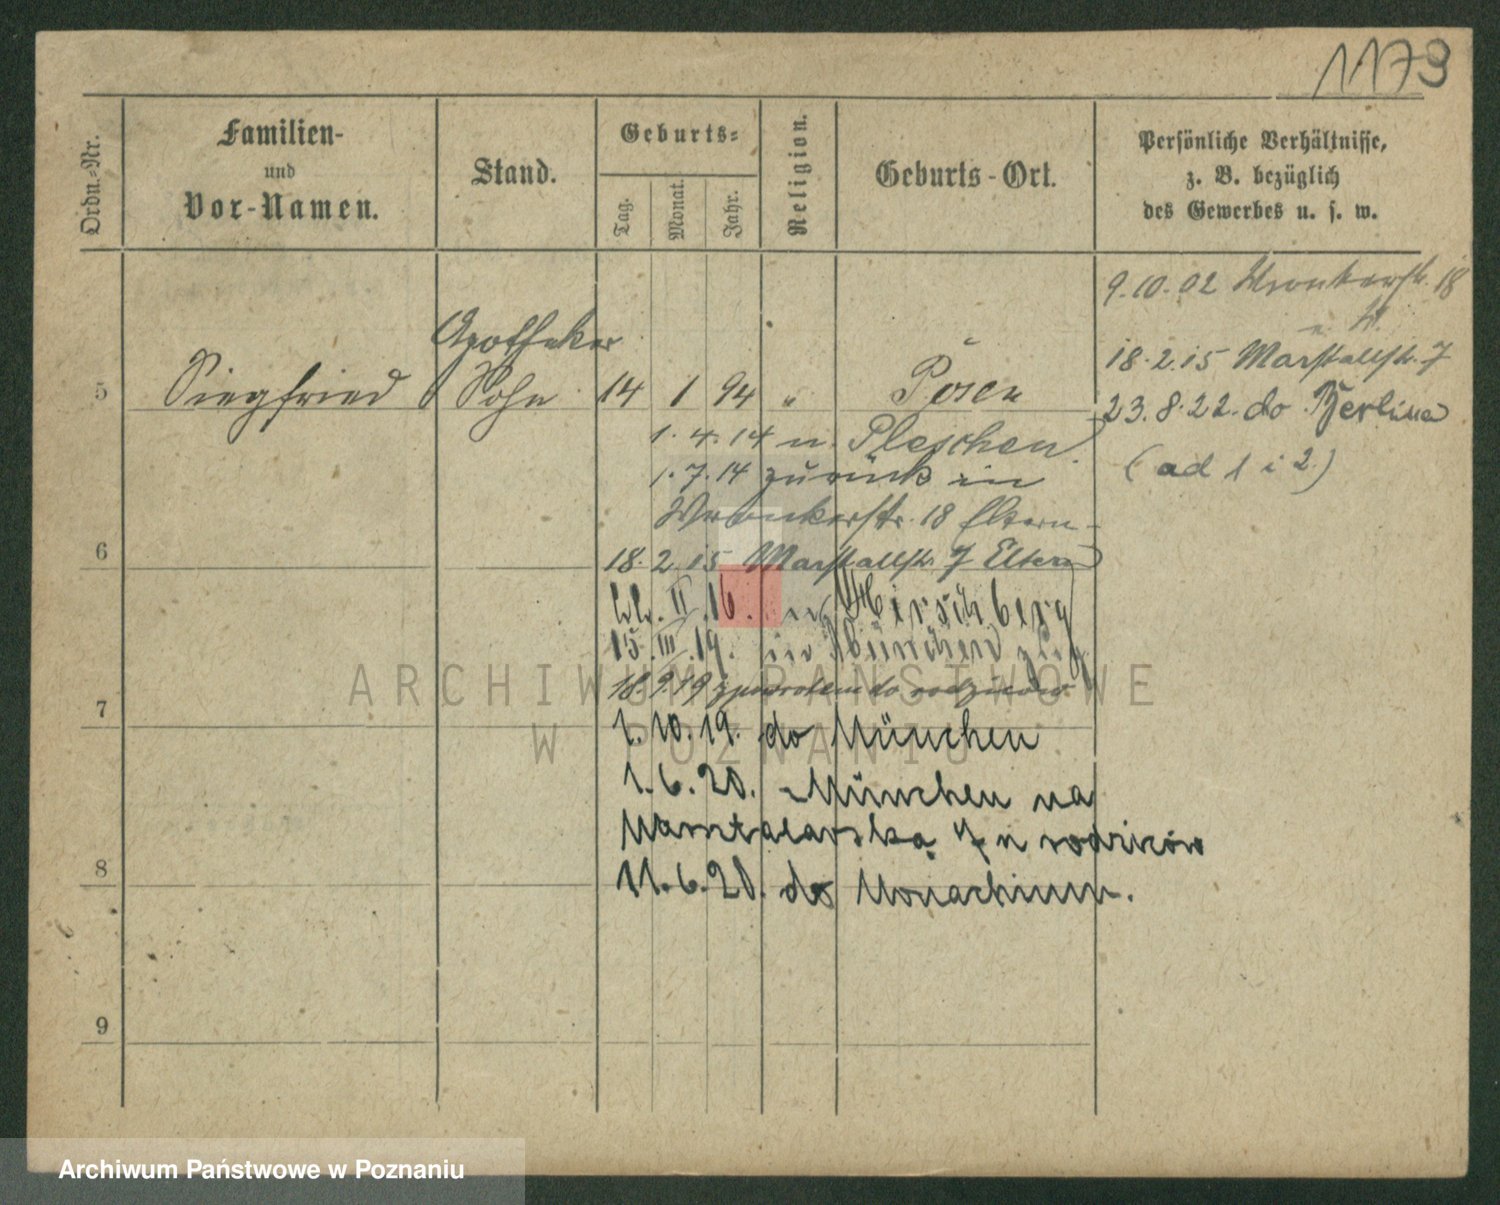 1173
Ordn.-Nr.
Familien-
und
Vor-Namen.
Stand.
Geburts-
Tag.
Monat.
Jahr.
Religion.
Geburts-Ort.
Persönliche Verhältnisse,
z. B. bezüglich
des Gewerbes u. s. w.
9.10.02 Wronkerstr. 18
18.2.15 Marstallstr. 7
23.8.22. do Berlina
(ad 1 i 2)
Apotheker
5 Siegfried Sohn 14 1 94 " Posen
1.4.14 n. Pleschen.
1.7.14 zurück in
Wronkerstr. 18 Eltern
6
18.2.15 Marstallstr. 7 Eltern
II.16. Hirschberg
15.III.19. München
18.9.19 zpowrotem do rodziców
7
1.10.19. do München
1.6.20. München na
Marsztalarską 7 u rodziców
8
11.6.20. do Monachium.
9
ARCHIWUM PAŃSTWOWE
W POZNANIU
Archiwum Państwowe w Poznaniu